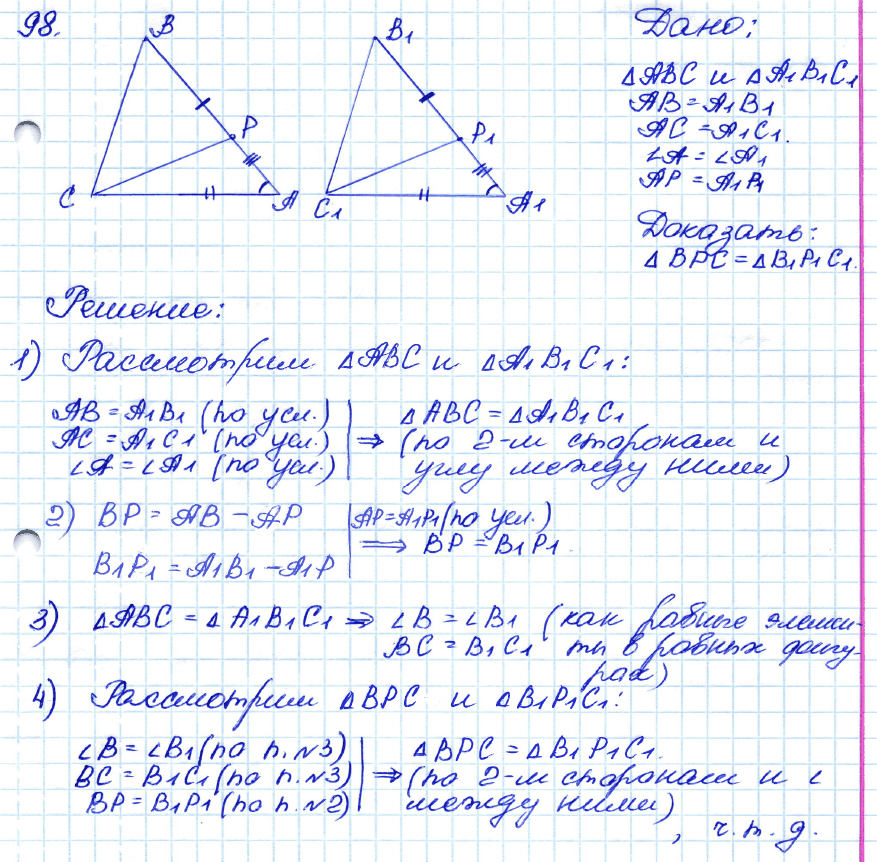 98.
B
P
C
A
B1
P1
C1
A1
Дано:
△ABC и △A1B1C1
AB = A1B1
AC = A1C1.
∠A = ∠A1
AP = A1P1
Доказать:
△BPC = △B1P1C1.
Решение:
1) Рассмотрим △ABC и △A1B1C1:
AB = A1B1 (по усл.)
AC = A1C1 (по усл.)
∠A = ∠A1 (по усл.)
⇒
△ABC = △A1B1C1
(по 2-м сторонам и
углу между ними)
2) BP = AB - AP
B1P1 = A1B1 - A1P
AP = A1P1 (по усл.)
⇒ BP = B1P1.
3) △ABC = △A1B1C1 ⇒ ∠B = ∠B1 (как равные элемен-
BC = B1C1 ты в равных фигу-
рах)
4) Рассмотрим △BPC и △B1P1C1:
∠B = ∠B1 (по п.№3)
BC = B1C1 (по п.№3)
BP = B1P1 (по п.№2)
⇒
△BPC = △B1P1C1.
(по 2-м сторонам и ∠
между ними)
, ч.т.д.